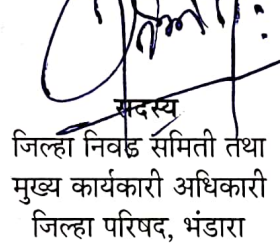 सदस्य
जिल्हा निवड समिती तथा
मुख्य कार्यकारी अधिकारी
जिल्हा परिषद, भंडारा